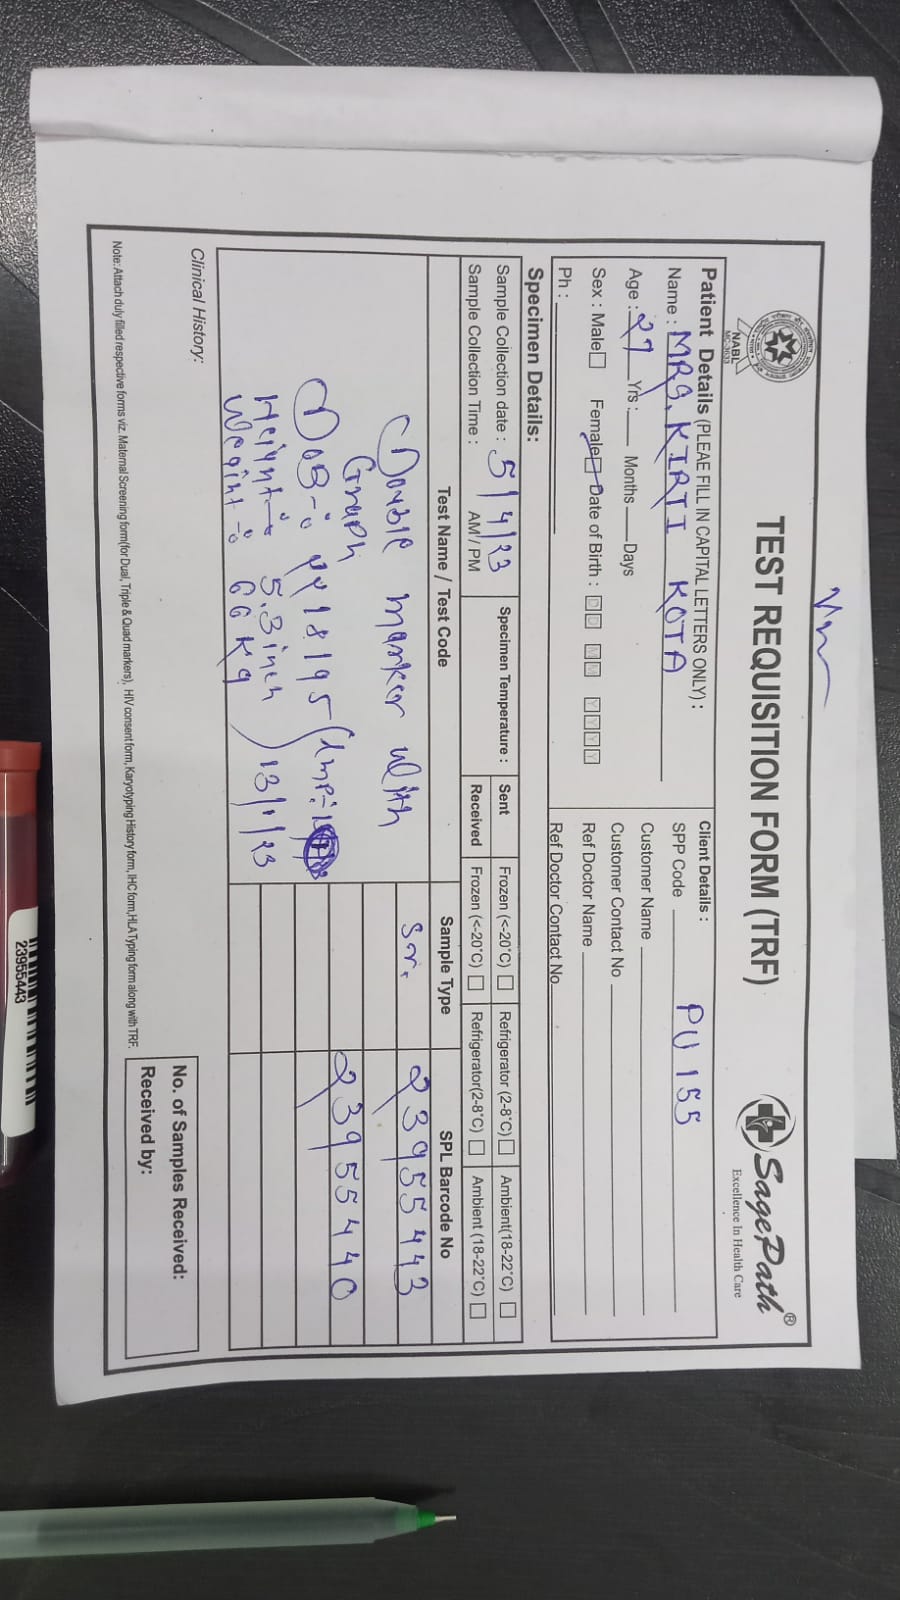 TEST REQUISITION FORM (TRF)
NABL
SagePath®
Excellence In Health Care
Patient Details (PLEAE FILL IN CAPITAL LETTERS ONLY) :
Name : MRS. KIRTI KOTA
Age : 27 Yrs : Months Days
Sex : Male Female Date of Birth : D D M M Y Y Y Y
Ph :
Client Details :
SPP Code PU 155
Customer Name
Customer Contact No
Ref Doctor Name
Ref Doctor Contact No
Specimen Details:
Sample Collection date : 5/4/23 Specimen Temperature : Sent Frozen (<-20°C) Refrigerator (2-8°C) Ambient(18-22°C)
Sample Collection Time : AM / PM Received Frozen (<-20°C) Refrigerator(2-8°C) Ambient (18-22°C)
Test Name / Test Code Sample Type SPL Barcode No
Double marker with Sr. 23955443
Graph 23955440
DOB-: (Lmp-:
Height-: 5.3 inch 13/1/23
Weight-: 66 Kg
Clinical History:
No. of Samples Received:
Received by:
Note: Attach duly filled respective forms viz. Maternal Screening form(for Dual, Triple & Quad markers), HIV consent form, Karyotyping History form, IHC form,HLA Typing form along with TRF.
23955443